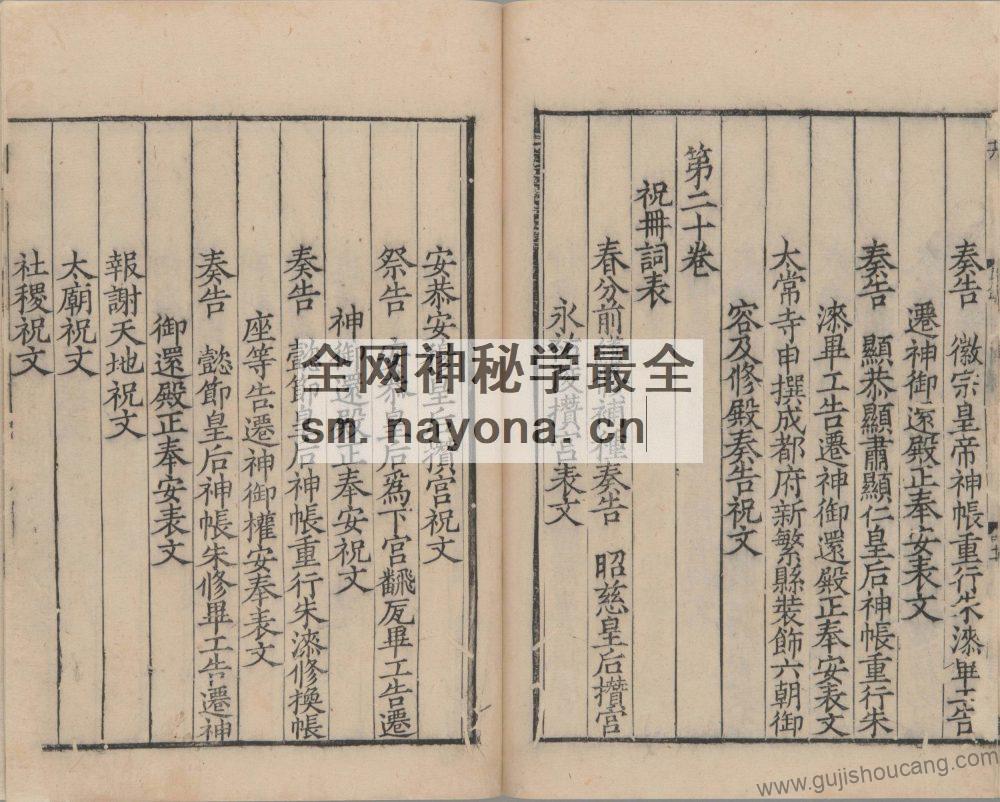 奏告　徽宗皇帝神帳重行朱漆畢工告
遷神御還殿正奉安表文
奏告　顯恭顯肅顯仁皇后神帳重行朱
漆畢工告遷神御還殿正奉安表文
太常寺申撰成都府新繁縣裝飾六朝御
容及修殿奏告祝文
第二十卷
祝冊詞表
春分前補種奏告　昭慈皇后攢宮
永攢宮表文
安恭安皇后攢宮祝文
祭告　皇后爲下宮飜瓦畢工告遷
神還殿正奉安祝文
奏告　懿節皇后神帳重行朱漆修換帳
座等告遷神御權安奉表文
奏告　懿節皇后神帳朱修畢工告遷神
御還殿正奉安表文
報謝天地祝文
太廟祝文
社稷祝文
全网神秘学最全
sm.nayona.cn
www.gujishoucang.com